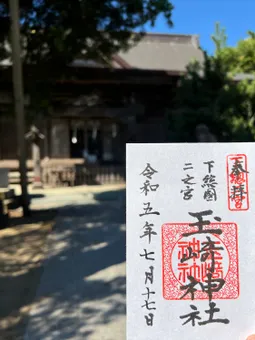 奉拝
下総国
二之宮
玉崎神社
令和五年七月十七日